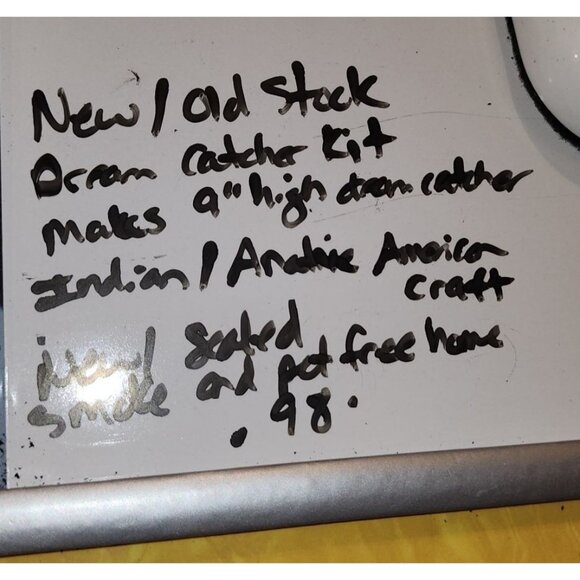 New / Old Stock
Dream Catcher Kit
Makes 9" high dream catcher
Indian / Anative American
craft
New / Sealed
Smoke and pet free home
. 98 .